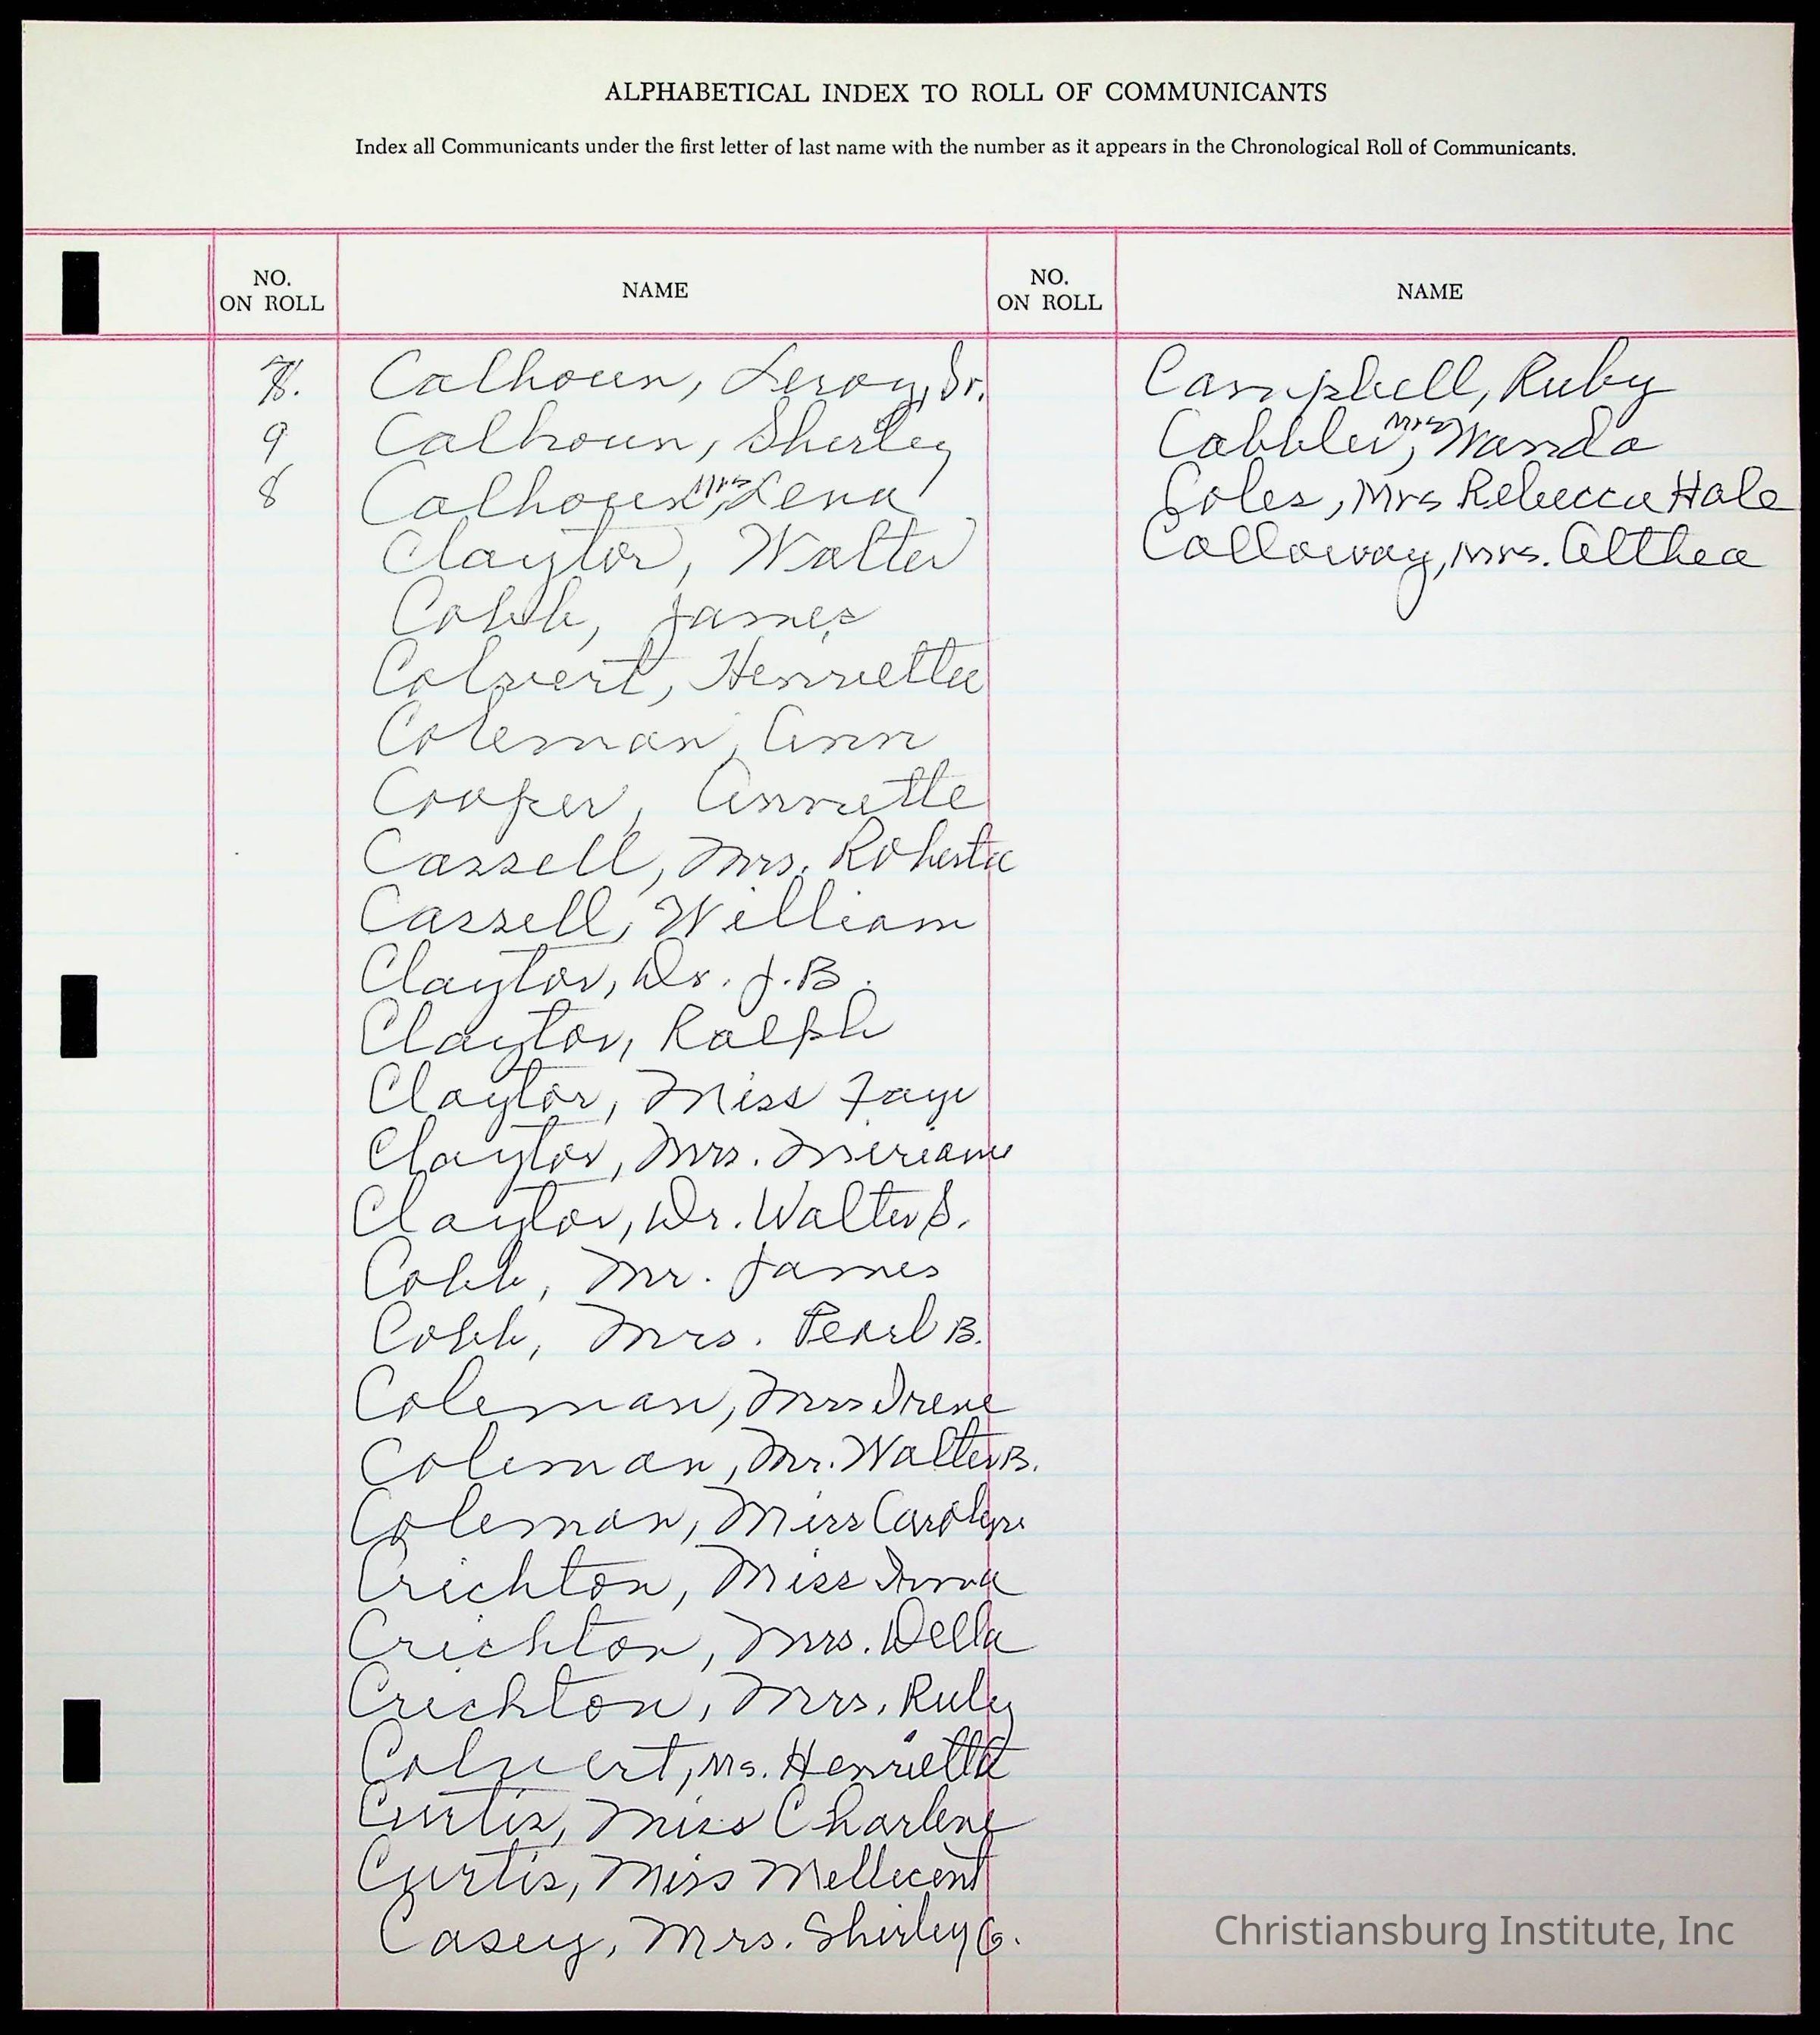 ALPHABETICAL INDEX TO ROLL OF COMMUNICANTS
Index all Communicants under the first letter of last name with the number as it appears in the Chronological Roll of Communicants.
NO. ON ROLL NAME NO. ON ROLL NAME
Calhoun, Leroy, Sr.
9 Calhoun, Shirley
8 Calhoun, Mrs Lena
Claytor, Walter
Cobb, James
Colvert, Henrietta
Coleman, Ann
Cooper, Annette
Cassell, Mrs. Roberta
Cassell, William
Claytor, Dr. J.B.
Claytor, Ralph
Claytor, Miss Faye
Claytor, Mrs. Miriam
Claytor, Dr. Walter S.
Cobb, Mr. James
Cobb, Mrs. Pearl B.
Coleman, Mrs Irene
Coleman, Mr. Walter B.
Coleman, Miss Carolyn
Crichton, Miss
Crichton, Mrs. Della
Crichton, Mrs. Ruby
Colvert, Ms. Henrietta
Curtis, Miss Charlene
Curtis, Miss Mellecent
Casey, Mrs. Shirley G.
Campbell, Ruby
Cobbler, Mrs Wanda
Coles, Mrs Rebecca Hale
Calloway, Mrs. Althea
Christiansburg Institute, Inc